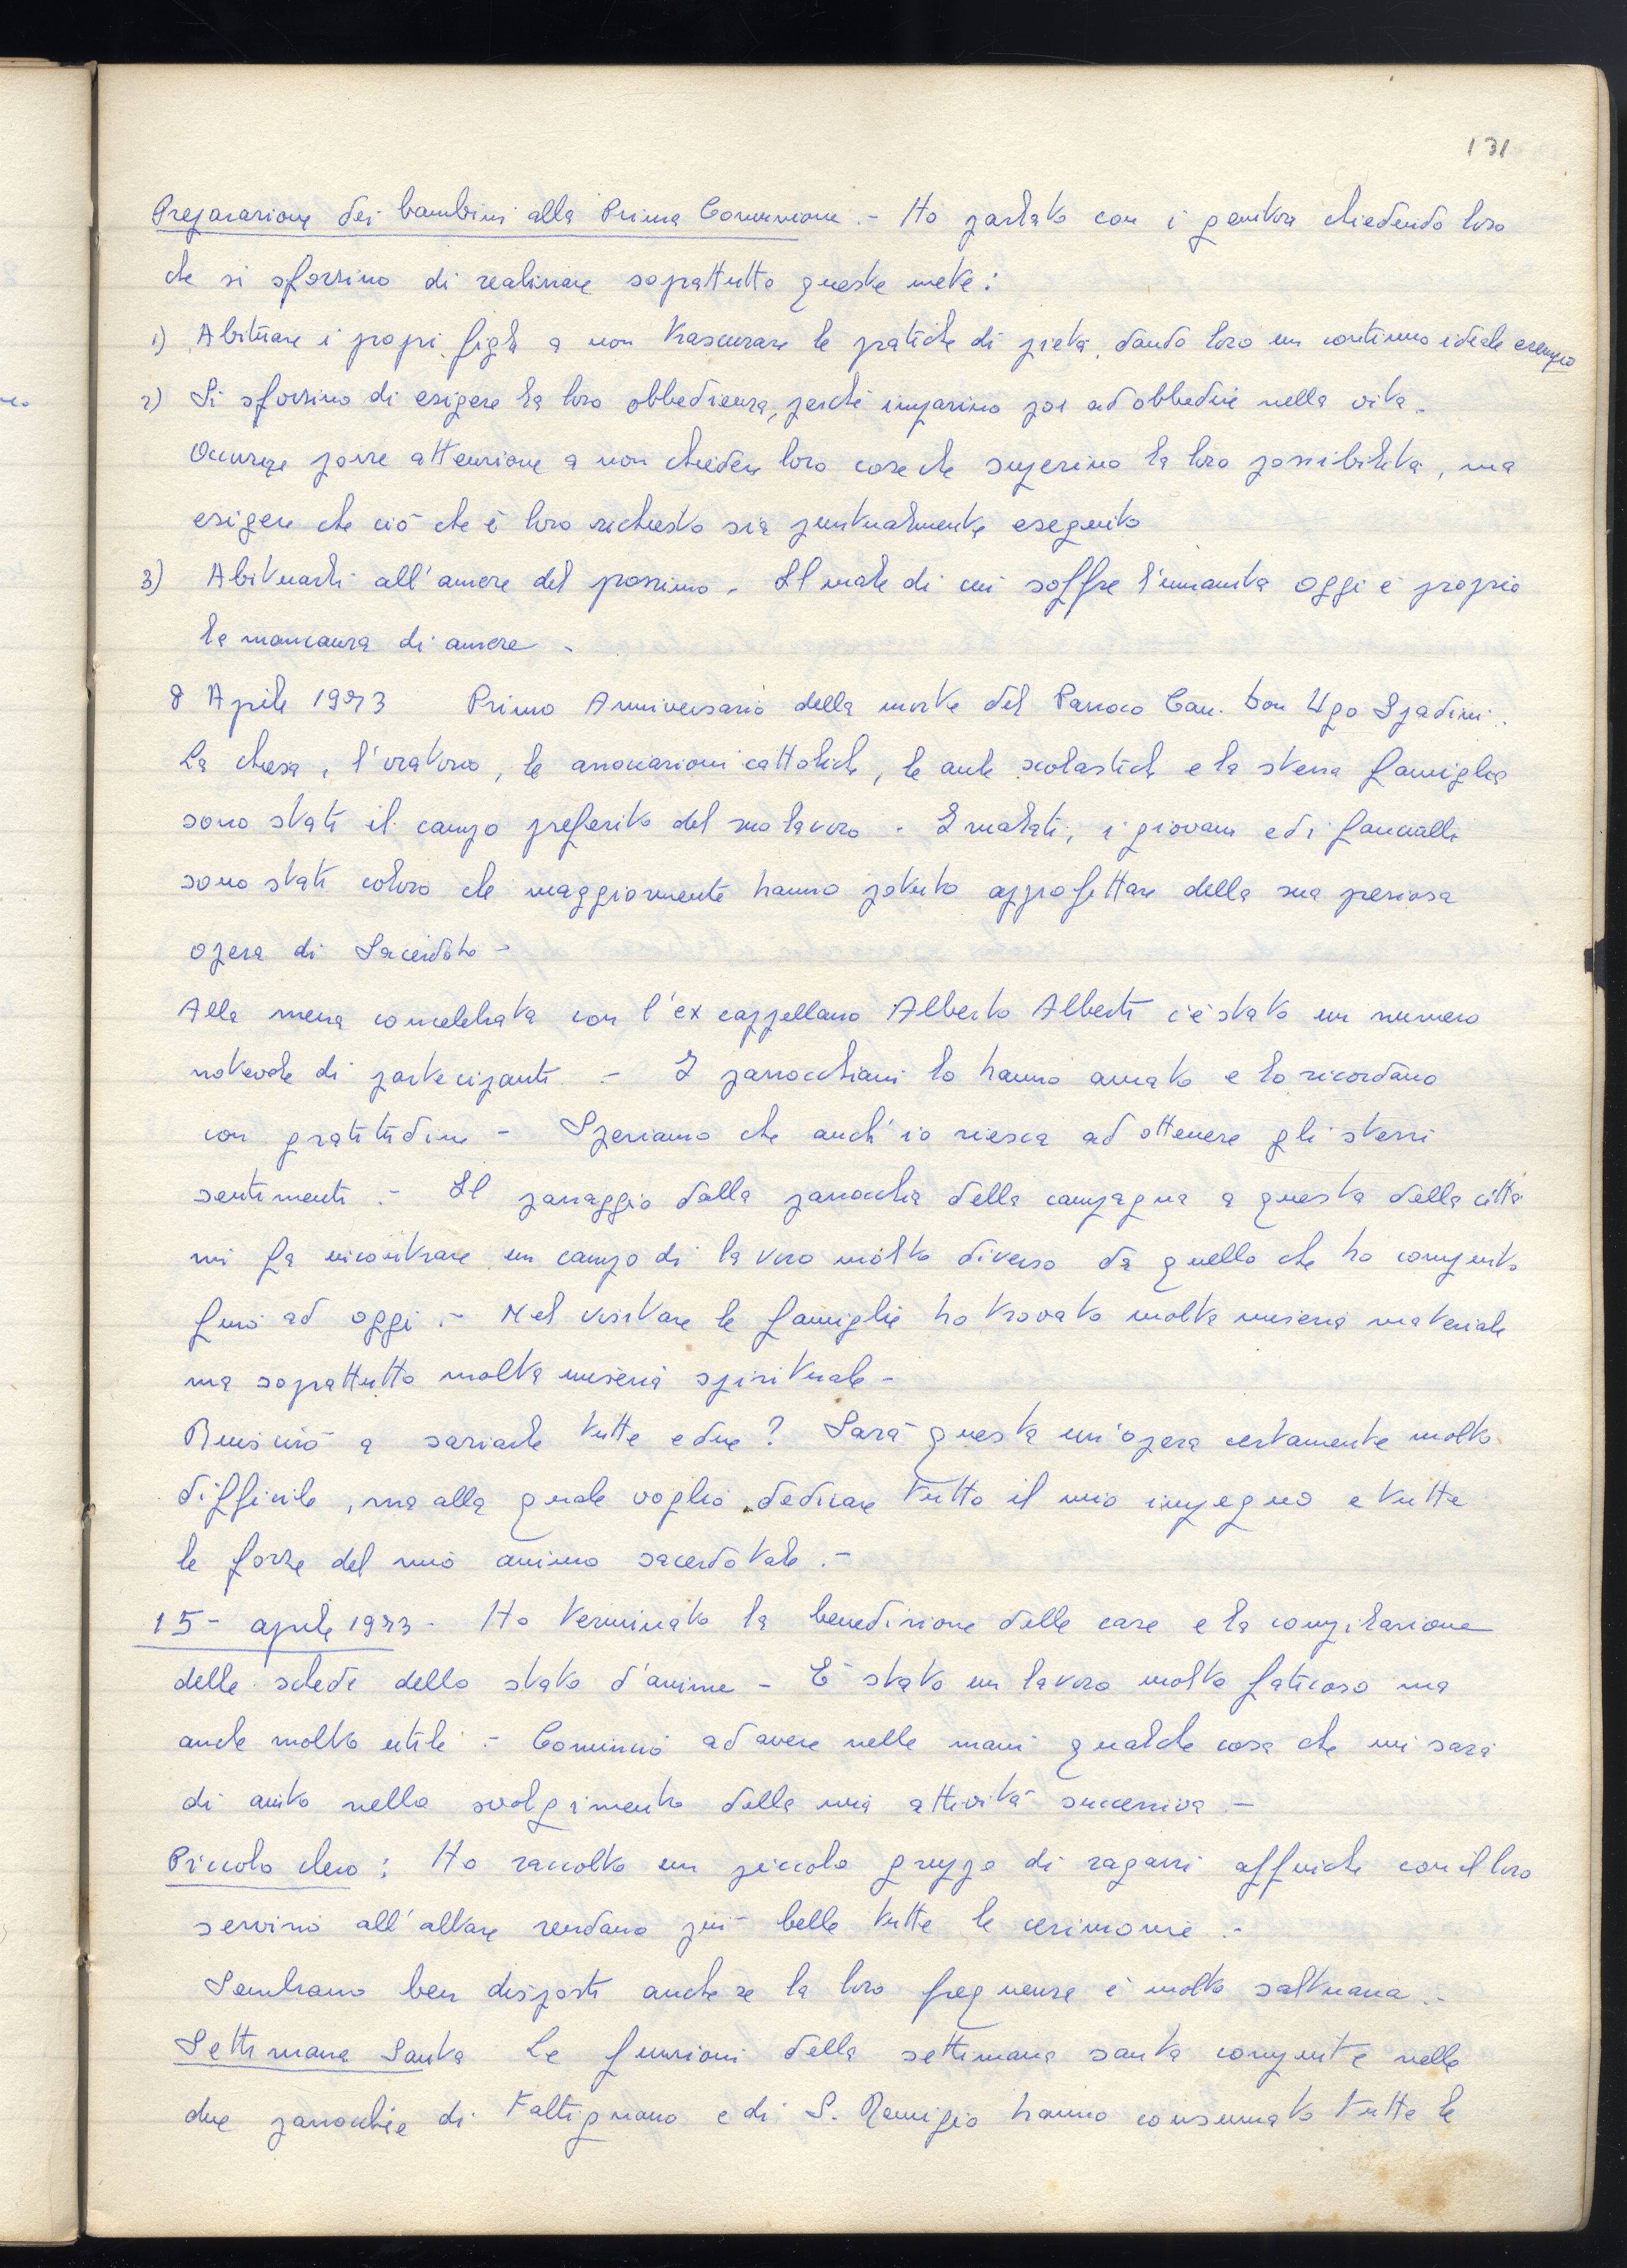 131
Preparazione dei bambini alla Prima Comunione .- Ho parlato con i genitori chiedendo loro
che si sforzino di realizzare soprattutto queste mete:
1) Abituare i propri figli a non trascurare le pratiche di pietà, dando loro un continuo ideale esempio
2) Si sforzino di esigere la loro obbedienza, perché imparino poi ad obbedire nella vita.
Occorre porre attenzione a non chiedere loro cose che superino la loro possibilità, ma
esigere che ciò che è loro richiesto sia puntualmente eseguito
3) Abituarli all'amore del prossimo. Il male di cui soffre l'umanità oggi è proprio
la mancanza di amore.
8 Aprile 1973 Primo Anniversario della morte del Parroco Can. Don Ugo Spadini.
La chiesa, l'oratorio, le associazioni cattoliche, le aule scolastiche e la stessa famiglia
sono stati il campo preferito del suo lavoro . I malati, i giovani ed i fanciulli
sono stati coloro che maggiormente hanno potuto approfittare della sua preziosa
opera di Sacerdote -
Alla messa concelebrata con l'ex cappellano Alberto Alberti c'è stato un numero
notevole di partecipanti .- I parrocchiani lo hanno amato e lo ricordano
con gratitudine - Speriamo che anch'io riesca ad ottenere gli stessi
sentimenti .- Il passaggio dalla parrocchia della campagna a questa della città
mi fa incontrare un campo di lavoro molto diverso da quello che ho compiuto
fino ad oggi .- Nel visitare le famiglie ho trovato molta miseria materiale
ma soprattutto molta miseria spirituale -
Riuscirò a saziarle tutte e due? Sarà questa un'opera certamente molto
difficile, ma alla quale voglio dedicare tutto il mio impegno e tutte
le forze del mio animo sacerdotale .-
15- aprile 1973 - Ho terminato la benedizione delle case e la compilazione
delle schede dello stato d'anime - È stato un lavoro molto faticoso ma
anche molto utile .- Comincio ad avere nelle mani qualche cosa che mi sarà
di aiuto nello svolgimento della mia attività successiva .-
Piccolo clero: Ho raccolto un piccolo gruppo di ragazzi affinché con il loro
servizio all'altare rendano più belle tutte le cerimonie .-
Sembrano ben disposti anche se la loro frequenza è molto saltuaria .-
Settimana Santa Le funzioni della settimana santa compiute nelle
due parrocchie di Faltignano e di S. Remigio hanno consumato tutte le